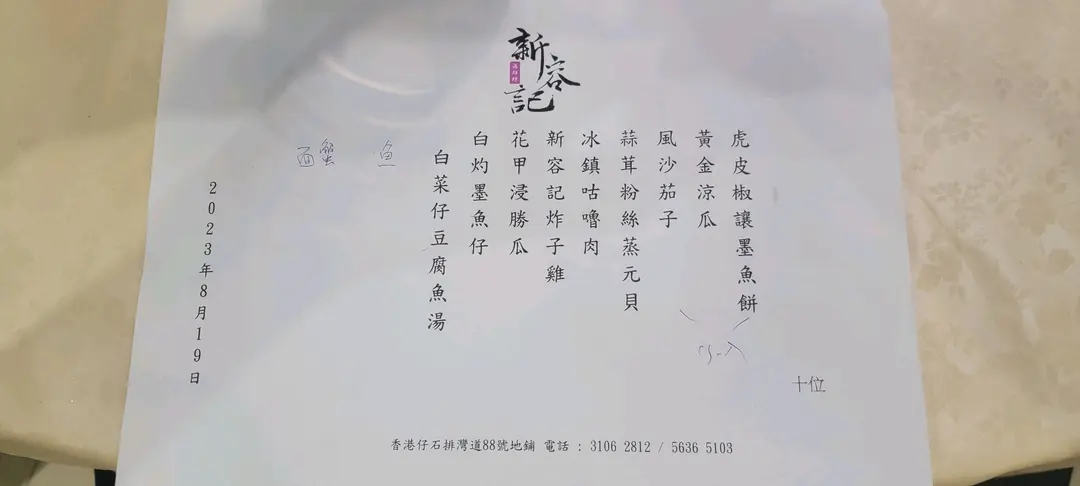 新容記
虎皮椒讓墨魚餅
黃金涼瓜
風沙茄子
蒜茸粉絲蒸元貝
冰鎮咕嚕肉
新容記炸子雞
花甲浸勝瓜
白灼墨魚仔
白菜仔豆腐魚湯
魚
蟹
2023年8月19日
十位
香港仔石排灣道88號地鋪 電話 : 3106 2812 / 5636 5103